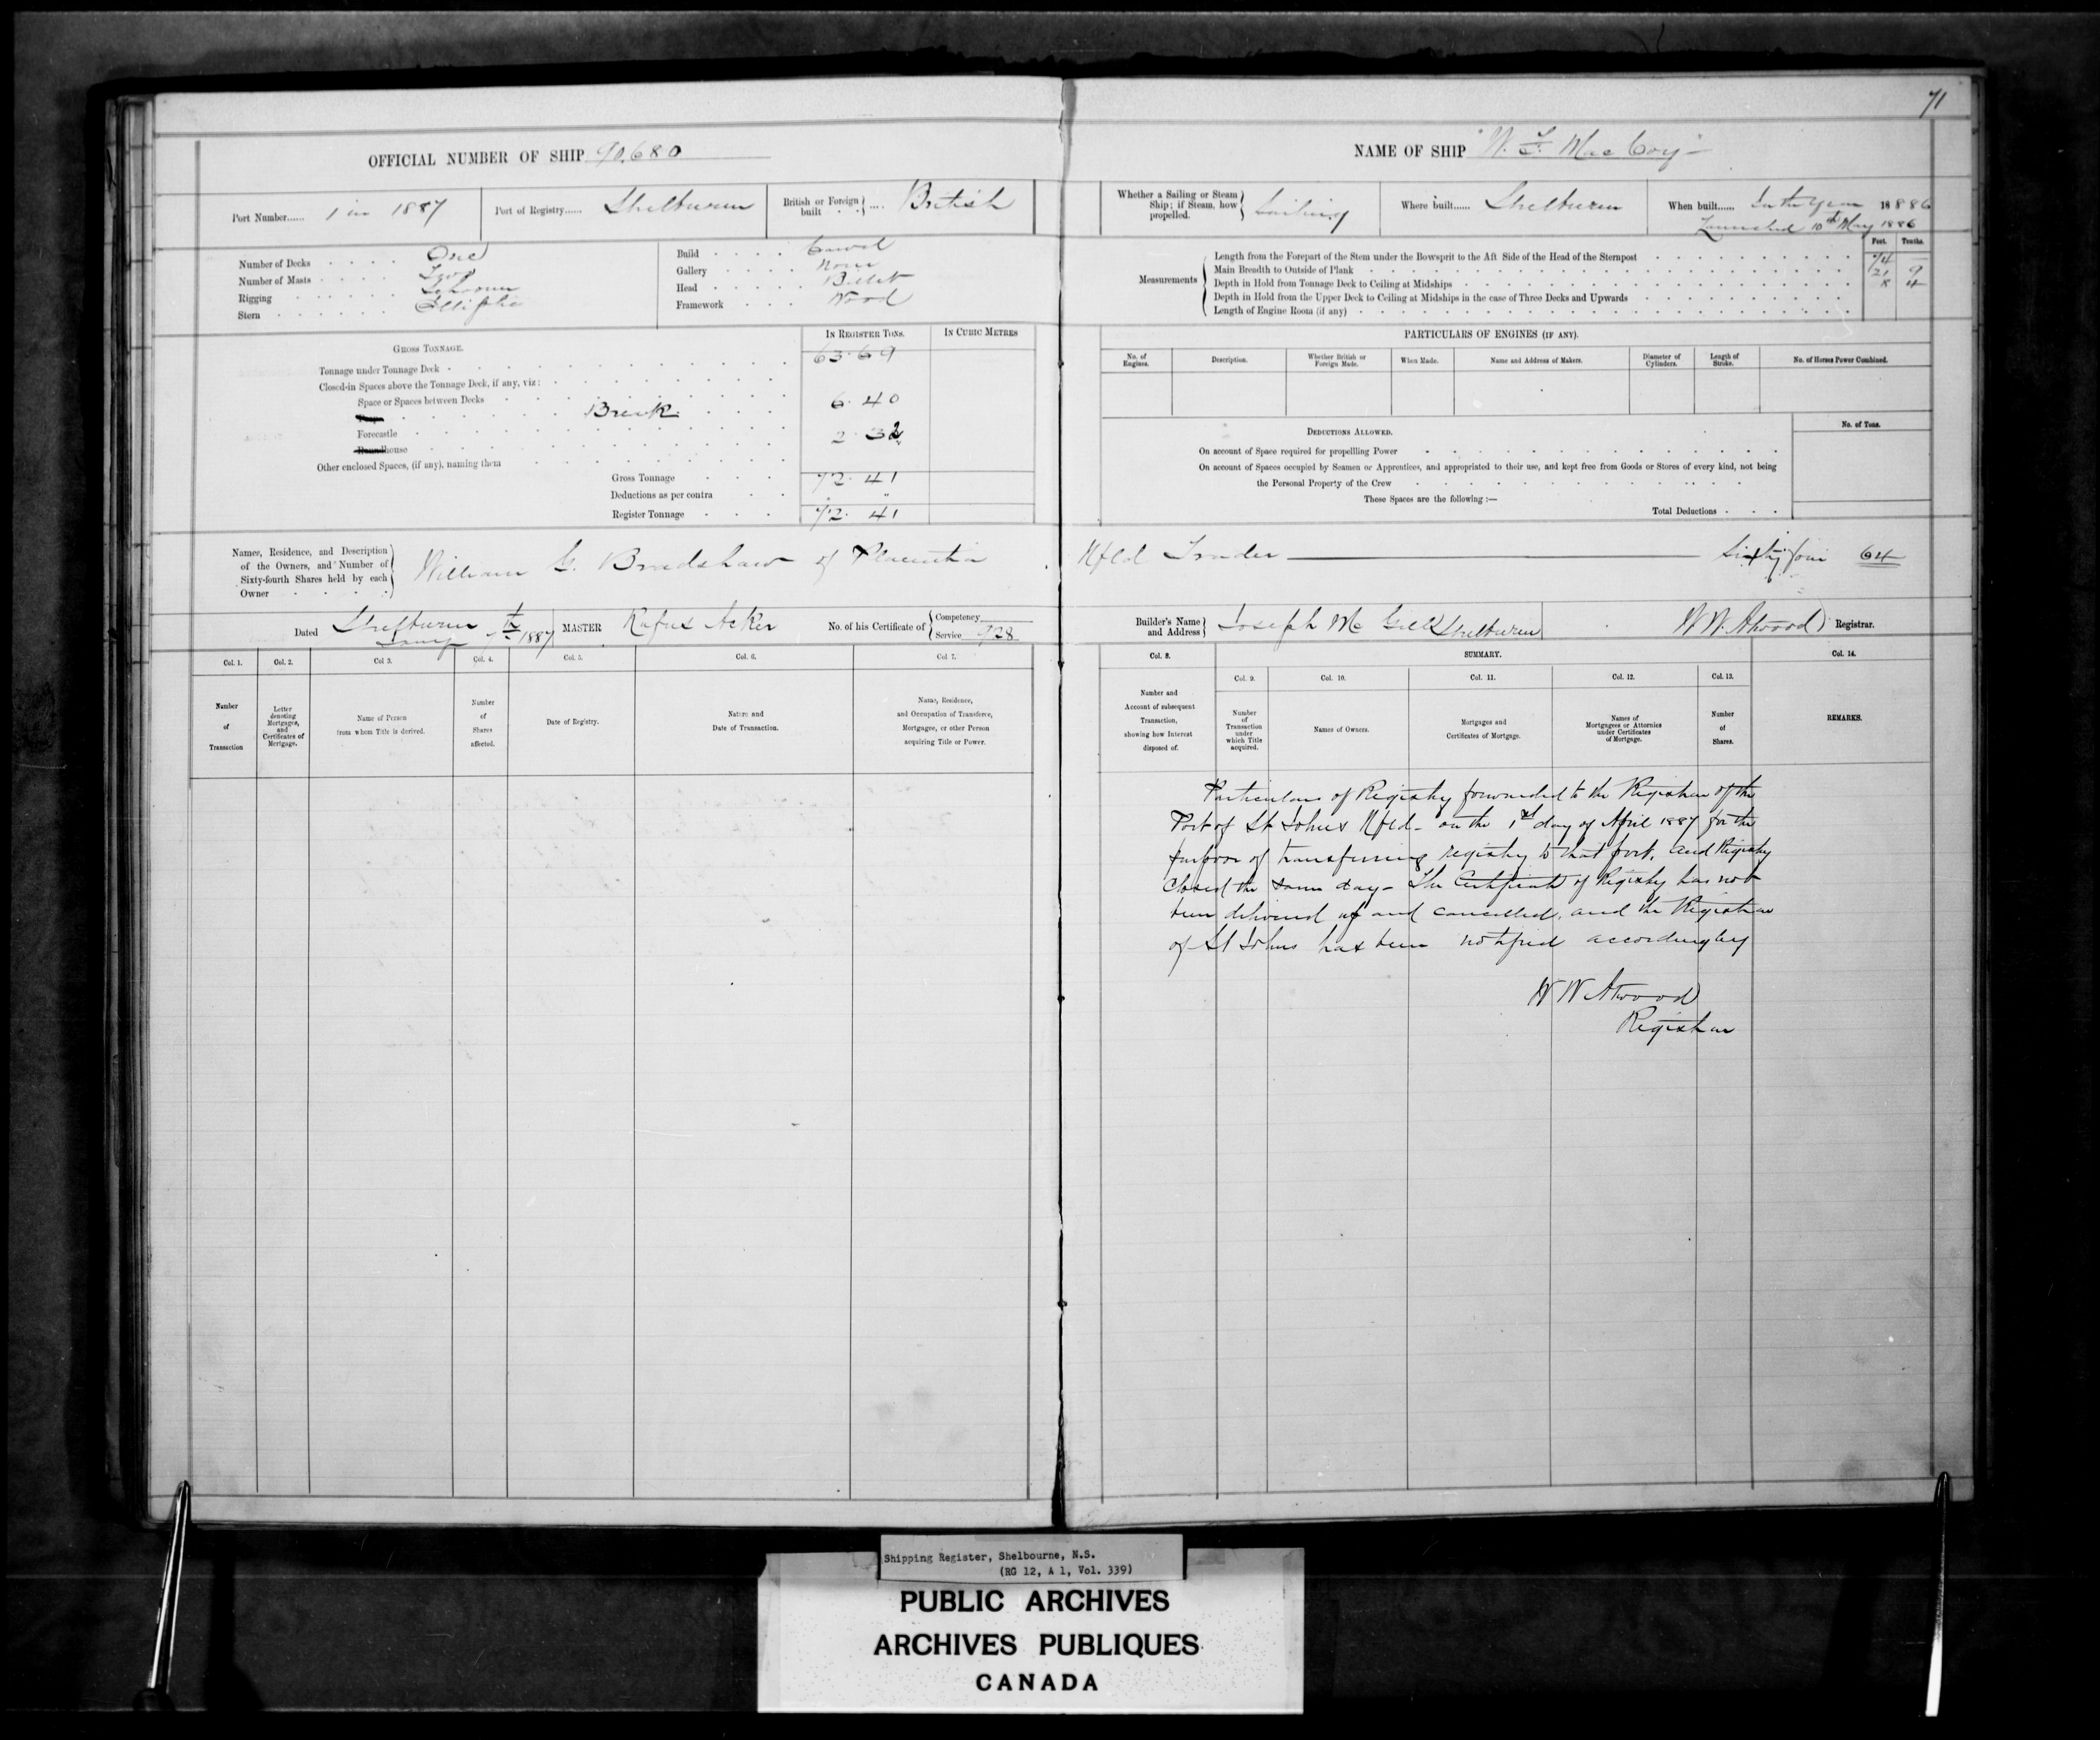 71
OFFICIAL NUMBER OF SHIP 90,680
Port Number...... 1 in 1887
Port of Registry...... Shelburne
British or Foreign built .... British
Number of Decks One
Number of Masts Two
Rigging Schooner
Stern Elliptic
Build Carvel
Gallery None
Head Billet
Framework Wood
IN REGISTER TONS.
IN CUBIC METRES
GROSS TONNAGE.
Tonnage under Tonnage Deck 63.69
Closed-in Spaces above the Tonnage Deck, if any, viz:
Space or Spaces between Decks
Poop Break 6.40
Forecastle 2.32
Roundhouse
Other enclosed Spaces, (if any), naming them
Gross Tonnage 72.41
Deductions as per contra "
Register Tonnage 72.41
NAME OF SHIP "W. F. MacCoy"
Whether a Sailing or Steam Ship; if Steam, how propelled. Sailing
Where built...... Shelburne
When built...... In the Year 18886
Launched 10th May 1886
Feet. Tenths.
Measurements
Length from the Forepart of the Stem under the Bowsprit to the Aft Side of the Head of the Sternpost 74 –
Main Breadth to Outside of Plank 21 9
Depth in Hold from Tonnage Deck to Ceiling at Midships 8 4
Depth in Hold from the Upper Deck to Ceiling at Midships in the case of Three Decks and Upwards
Length of Engine Room (if any)
PARTICULARS OF ENGINES (IF ANY).
No. of Engines.
Description.
Whether British or Foreign Made.
When Made.
Name and Address of Makers.
Diameter of Cylinders.
Length of Stroke.
No. of Horses Power Combined.
DEDUCTIONS ALLOWED.
No. of Tons.
On account of Space required for propelling Power
On account of Spaces occupied by Seamen or Apprentices, and appropriated to their use, and kept free from Goods or Stores of every kind, not being
the Personal Property of the Crew
These Spaces are the following :—
Total Deductions
Names, Residence, and Description
of the Owners, and Number of
Sixty-fourth Shares held by each
Owner
William G. Bradshaw of Placentia Nfld Trader Sixty four 64
Dated Shelburne Jany 7th 1887
MASTER Rufus Acker
No. of his Certificate of Competency
Service 728
Builder's Name and Address Joseph Mc Gill Shelburne
W W Atwood Registrar.
Col. 1.
Col. 2.
Col 3.
Col. 4.
Col. 5.
Col. 6.
Col 7.
Number of Transaction
Letter denoting Mortgages, and Certificates of Mortgage.
Name of Person from whom Title is derived.
Number of Shares affected.
Date of Registry.
Nature and Date of Transaction.
Name, Residence, and Occupation of Transferee, Mortgagee, or other Person acquiring Title or Power.
Col. 8.
SUMMARY.
Col. 14.
Col. 9.
Col. 10.
Col. 11.
Col. 12.
Col. 13.
Number and Account of subsequent Transaction, showing how Interest disposed of.
Number of Transaction under which Title acquired.
Names of Owners.
Mortgages and Certificates of Mortgage.
Names of Mortgagees or Attornies under Certificates of Mortgage.
Number of Shares.
REMARKS.
Particulars of Registry forwarded to the Registrar of the
Port of St Johns Nfld- on the 1st day of April 1887 for the
purpose of transferring registry to that port, and Registry
Closed the same day- The Certificate of Registry has not
been delivered up and cancelled, and the Registrar
of St Johns has been notified accordingly
W W Atwood
Registrar
Shipping Register, Shelbourne, N.S.
(RG 12, A 1, Vol. 339)
PUBLIC ARCHIVES
ARCHIVES PUBLIQUES
CANADA